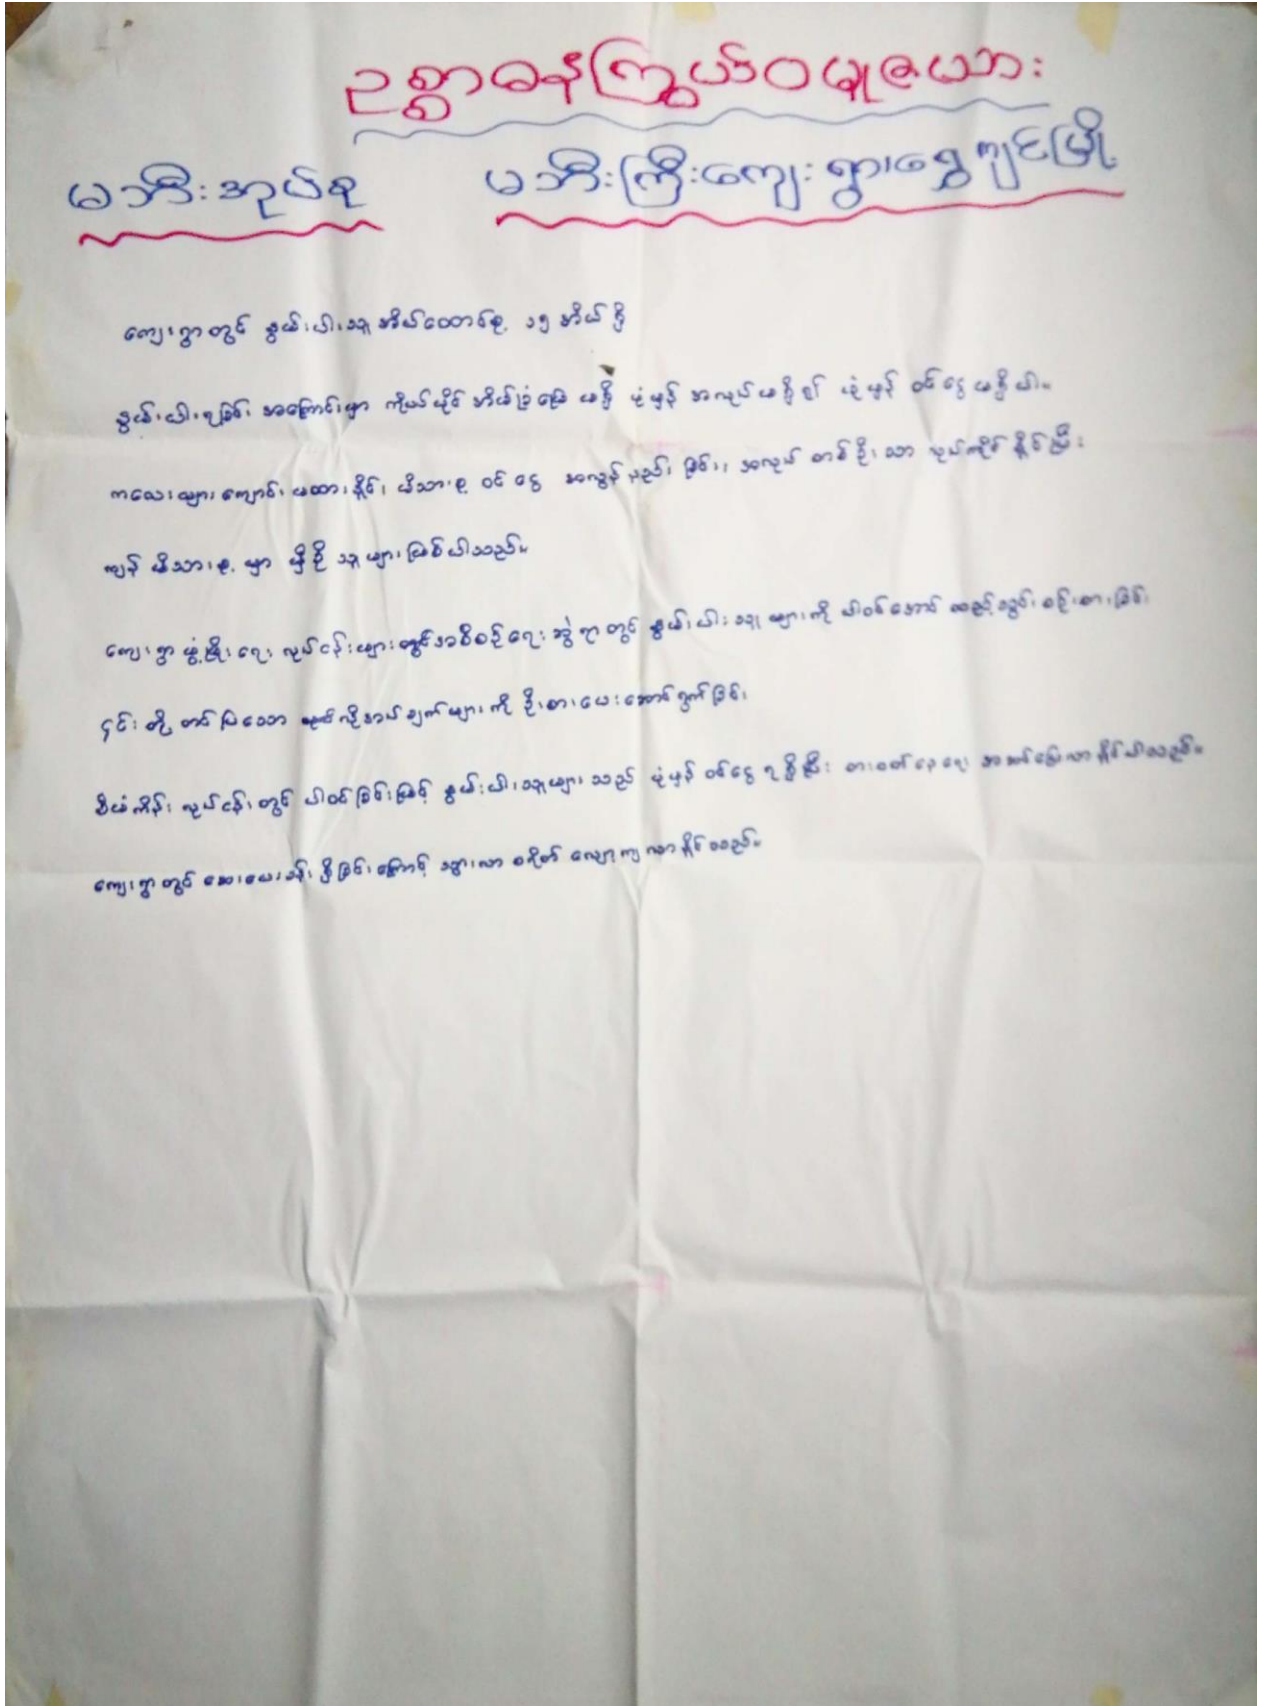 ဥစ္စာဓနကြွယ်ဝမှုဇယား
မအီးအုပ်စု မအီးကြီးကျေးရွာ၊ရွှေကျင်မြို့
ကျေးရွာတွင် နွမ်းပါးသူအိမ်ထောင်စု ၁၅ အိမ်ရှိ
နွမ်းပါးရခြင်း အကြောင်းမှာ ကိုယ်ပိုင် အိမ်ခြံမြေ မရှိ ပုံမှန် အလုပ်မရှိ၍ ပုံမှန် ဝင်ငွေ မရှိပါ။
ကလေးများကျောင်း မထားနိုင်၊ မိသားစု ဝင်ငွေ အလွန်နည်းခြင်း၊ အလုပ် တစ်ဦးသာ လုပ်ကိုင်နိုင်ပြီး
ကျန် မိသားစု မှာ မှီခို သူများဖြစ်ပါသည်။
ကျေးရွာဖွံ့ဖြိုးရေး လုပ်ငန်းများတွင်အစီစဉ်ရေးဆွဲရာတွင် နွမ်းပါးသူများကို ပါဝင်အောင် ထည့်သွင်းစဉ်းစားခြင်း
၄င်းတို့ တင်ပြသော လိုအပ်ချက်များကို ဦးစားပေးဆောင်ရွက်ခြင်း
စီမံကိန်းလုပ်ငန်းတွင် ပါဝင်ခြင်းဖြင့် နွမ်းပါးသူများသည် ပုံမှန် ဝင်ငွေရရှိပြီး စားဝတ်နေရေး အဆင်ပြေလာနိုင်ပါသည်။
ကျေးရွာတွင် ဆေးပေးခန်းရှိခြင်းကြောင့် သွားလာ စရိတ် လျော့ကျလာနိုင်သည်။